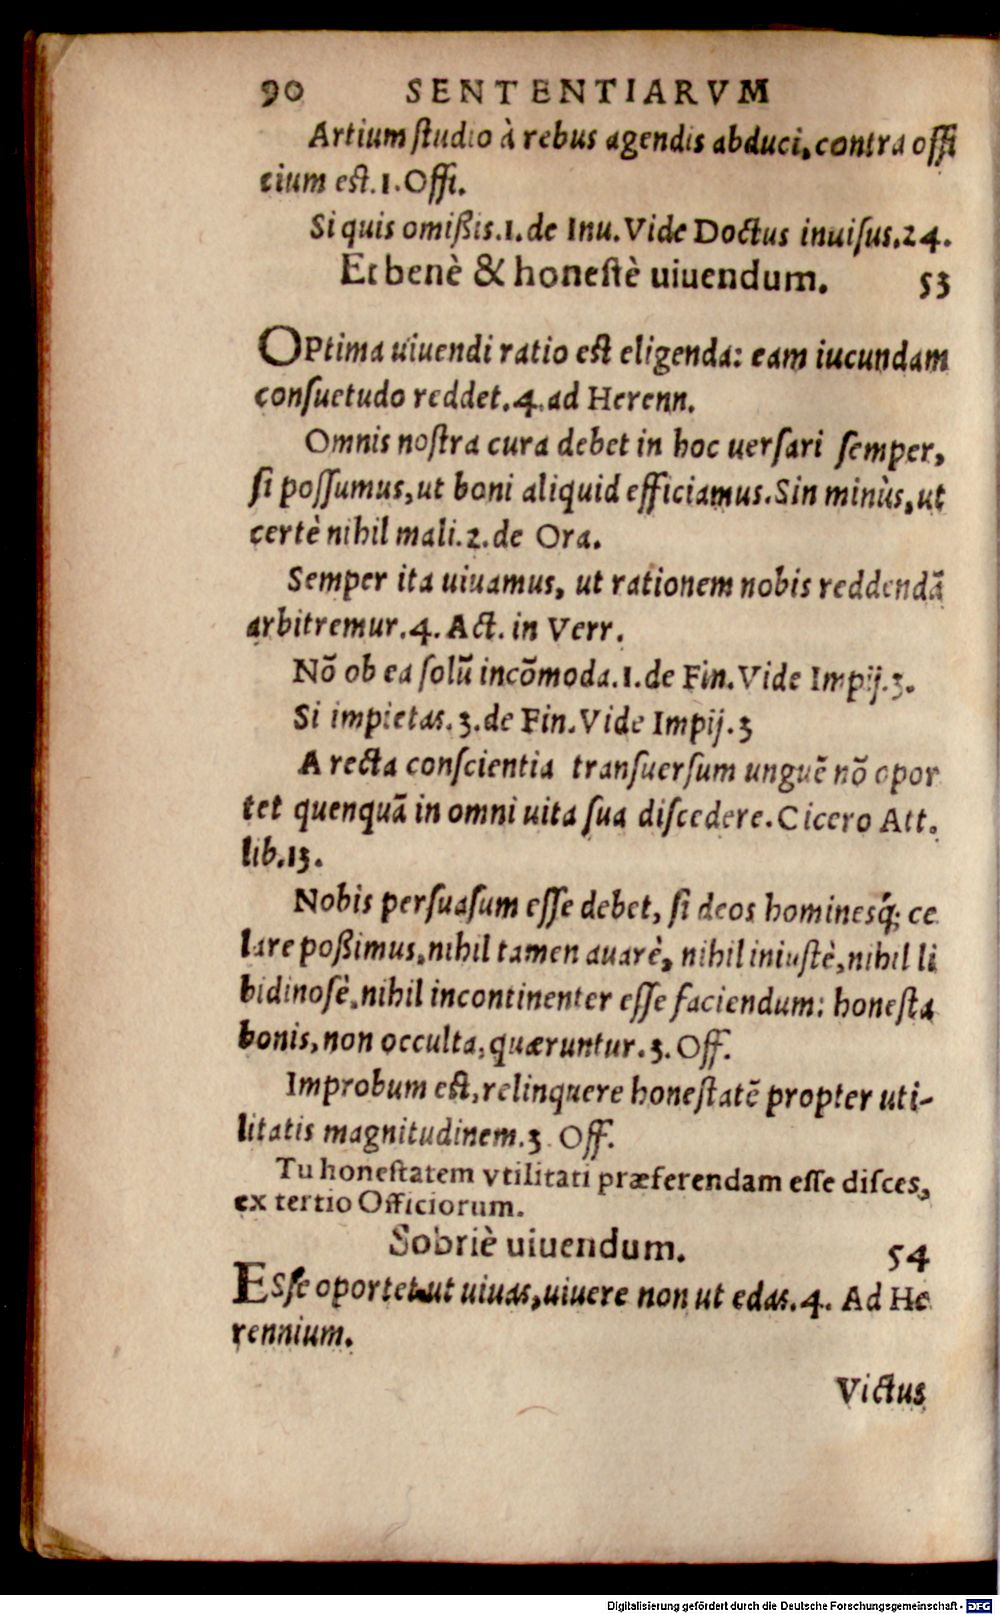 90 SENTENTIARVM
Artium ſtudio à rebus agendis abduci, contra offi
cium eſt. 1. Offi.
Si quis omißis. 1. de Inu. Vide Doctus inuiſus. 24.
Et benè & honeſtè uiuendum. 53
OPtima uiuendi ratio eſt eligenda: eam iucundam
conſuetudo reddet. 4. ad Herenn.
Omnis noſtra cura debet in hoc uerſari ſemper,
ſi poſſumus, ut boni aliquid efficiamus. Sin minùs, ut
certè nihil mali. 2. de Ora.
Semper ita uiuamus, ut rationem nobis reddendā
arbitremur. 4. Act. in Verr.
Nō ob ea ſolū incōmoda. 1. de Fin. Vide Impij. 3.
Si impietas. 3. de Fin. Vide Impij. 3
A recta conſcientia tranſuerſum unguē nō opor
tet quenquā in omni uita ſua diſcedere. Cicero Att.
lib. 13.
Nobis perſuaſum eſſe debet, ſi deos hominesq́; ce
lare poßimus, nihil tamen auarè, nihil iniuſtè, nihil li
bidinosè, nihil incontinenter eſſe faciendum: honeſta
bonis, non occulta, quæruntur. 3. Off.
Improbum eſt, relinquere honeſtatē propter uti-
litatis magnitudinem. 3. Off.
Tu honeſtatem vtilitati præferendam eſſe diſces,
ex tertio Officiorum.
Sobriè uiuendum. 54
ESſe oportet ut uiuas, uiuere non ut edas. 4. Ad He
rennium.
Victus
Digitalisierung gefördert durch die Deutsche Forschungsgemeinschaft - DFG